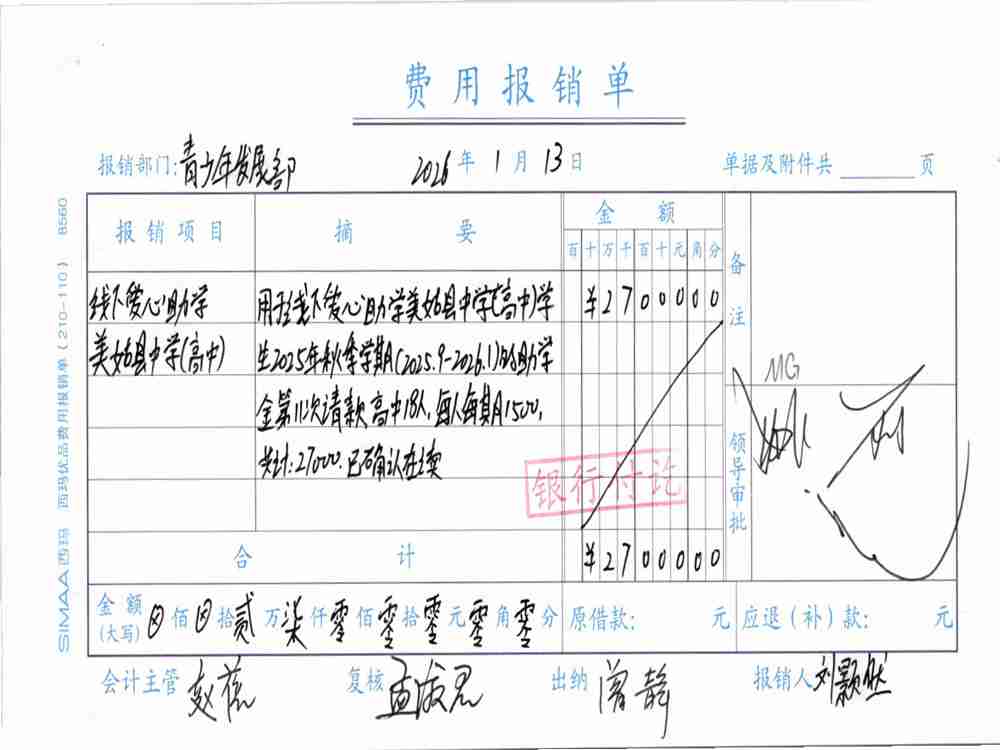 费用报销单
报销部门:青少年发展部 2026年1月13日 单据及附件共 页
报销项目 摘要 金额 备注
百十万千百十元角分
线下爱心助学 用于线下爱心助学美姑县中学(高中)学 ¥2700000
美姑县中学(高中) 生2025年秋季学期(2025.9-2026.1)的助学
金第11次请款高中18人,每人每期1500,
共计:27000.已确认在续
银行付讫
MG
领导审批
合计 ¥2700000
金额(大写) ⊗佰⊗拾贰万柒仟零佰零拾零元零角零分 原借款: 元 应退(补)款: 元
会计主管 复核 出纳 曾静 报销人 刘颖然
SIMAA西玛 西玛优品费用报销单(210-110) 8560